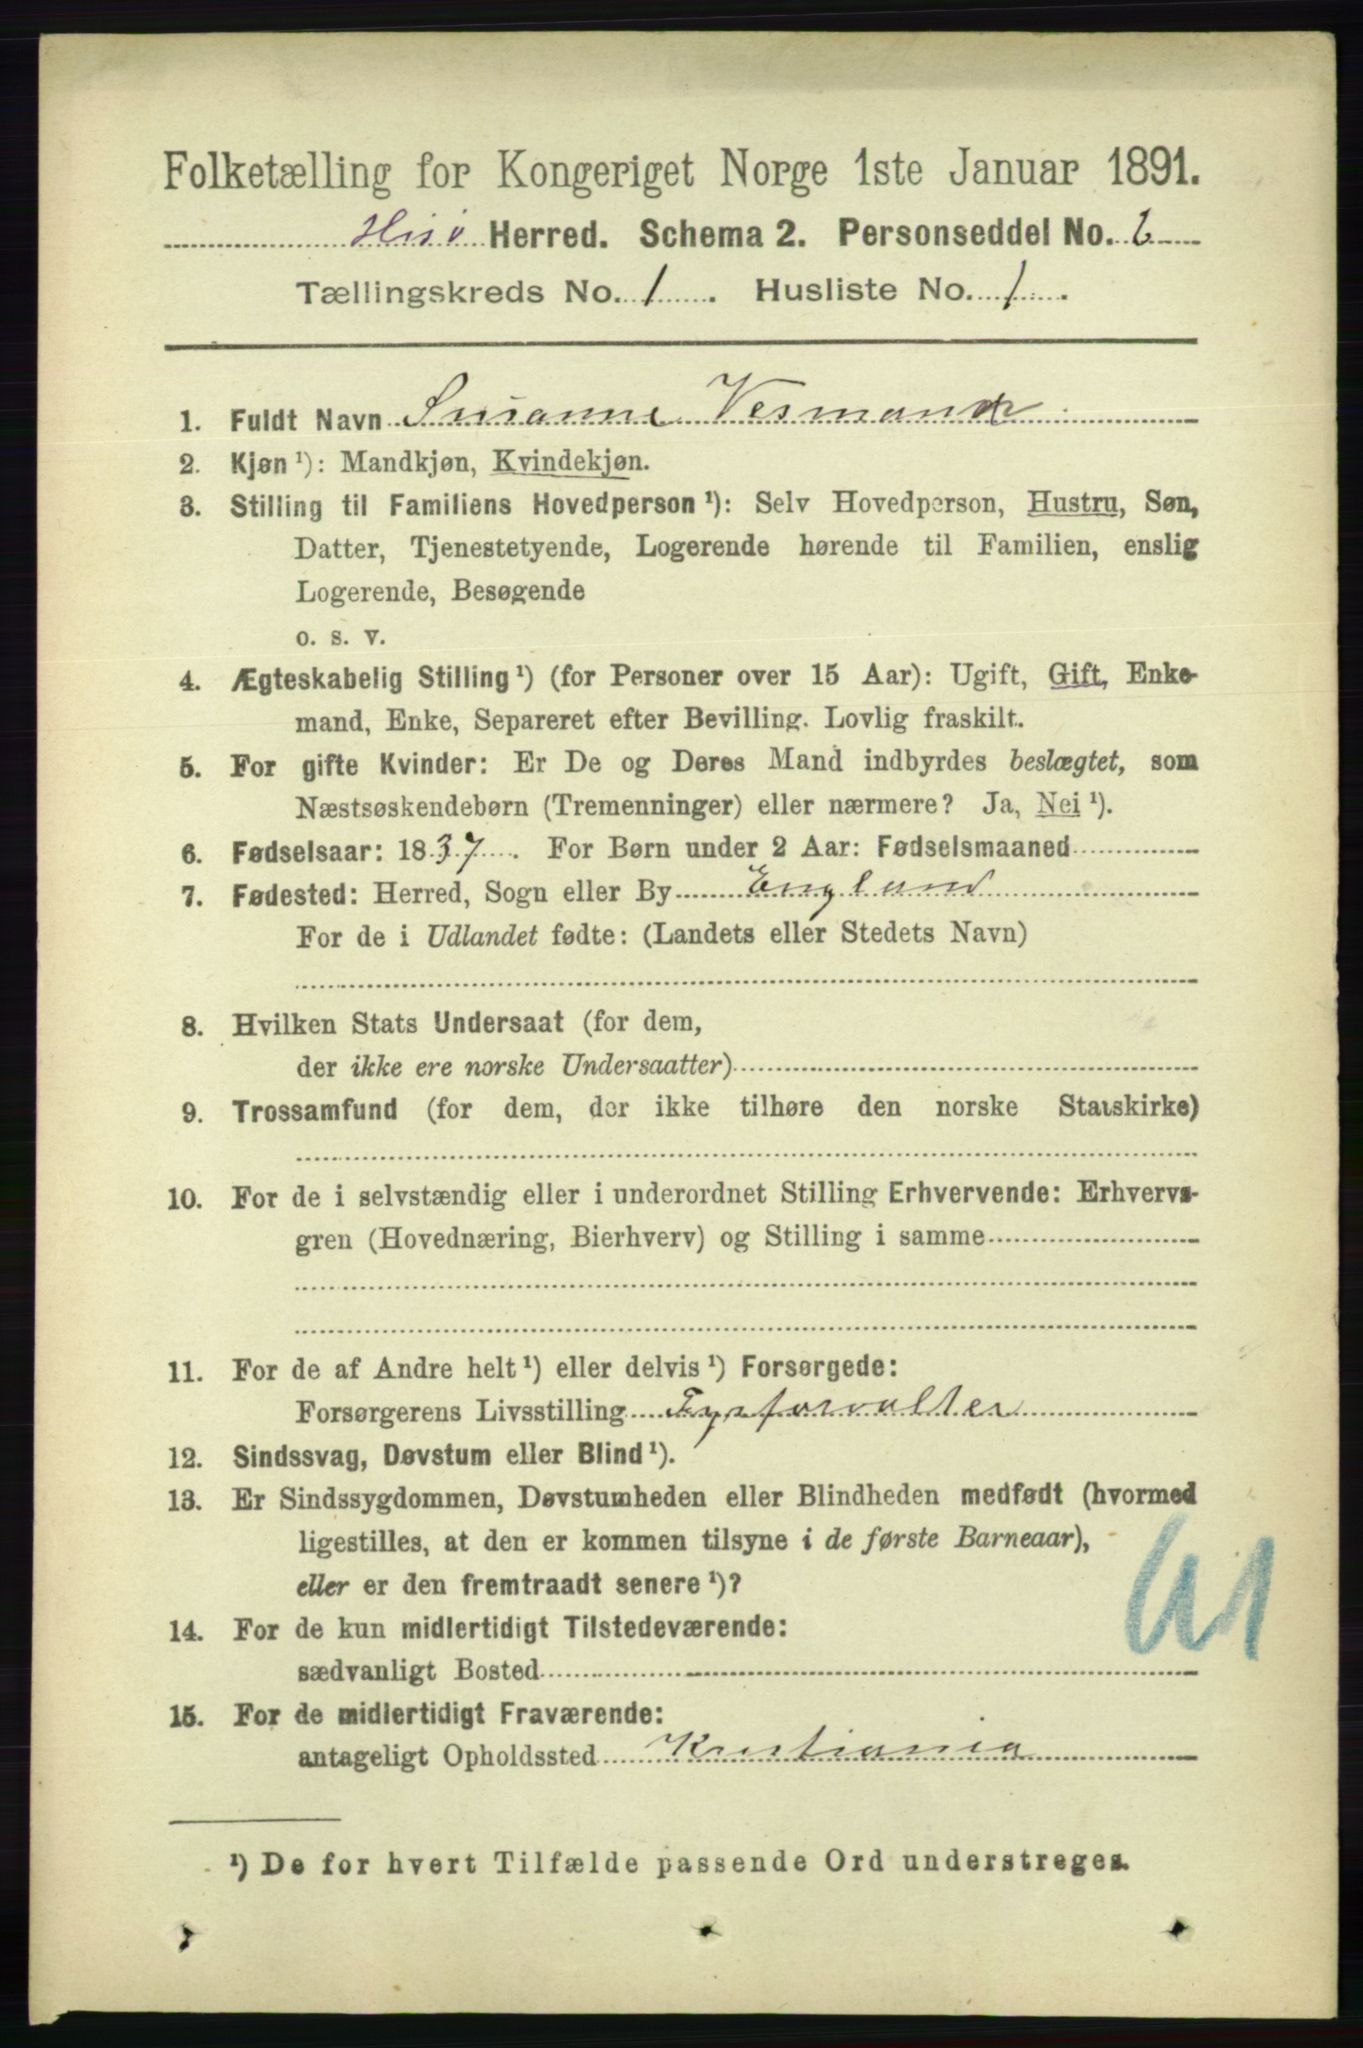 Folketælling for Kongeriget Norge 1ste Januar 1891.
Hisø Herred. Schema 2. Personseddel No. 6
Tællingskreds No. 1. Husliste No. 1.
1. Fuldt Navn Susanne Vesmand
2. Kjøn ¹): Mandkjøn, Kvindekjøn.
3. Stilling til Familiens Hovedperson ¹): Selv Hovedperson, Hustru, Søn,
Datter, Tjenestetyende, Logerende hørende til Familien, enslig
Logerende, Besøgende
o. s. v.
4. Ægteskabelig Stilling ¹) (for Personer over 15 Aar): Ugift, Gift, Enke-
mand, Enke, Separeret efter Bevilling. Lovlig fraskilt.
5. For gifte Kvinder: Er De og Deres Mand indbyrdes beslægtet, som
Næstsøskendebørn (Tremenninger) eller nærmere? Ja, Nei ¹).
6. Fødselsaar: 1837. For Børn under 2 Aar: Fødselsmaaned
7. Fødested: Herred, Sogn eller By England
For de i Udlandet fødte: (Landets eller Stedets Navn)
8. Hvilken Stats Undersaat (for dem,
der ikke ere norske Undersaatter)
9. Trossamfund (for dem, der ikke tilhøre den norske Statskirke)
10. For de i selvstændig eller i underordnet Stilling Erhvervende: Erhvervs-
gren (Hovednæring, Bierhverv) og Stilling i samme
11. For de af Andre helt ¹) eller delvis ¹) Forsørgede:
Forsørgerens Livsstilling Fyrforvalter
12. Sindssvag, Døvstum eller Blind ¹).
13. Er Sindssygdommen, Døvstumheden eller Blindheden medfødt (hvormed
ligestilles, at den er kommen tilsyne i de første Barneaar),
eller er den fremtraadt senere ¹)?
14. For de kun midlertidigt Tilstedeværende:
sædvanligt Bosted
15. For de midlertidigt Fraværende:
antageligt Opholdssted Kristiania
¹) De for hvert Tilfælde passende Ord understreges.